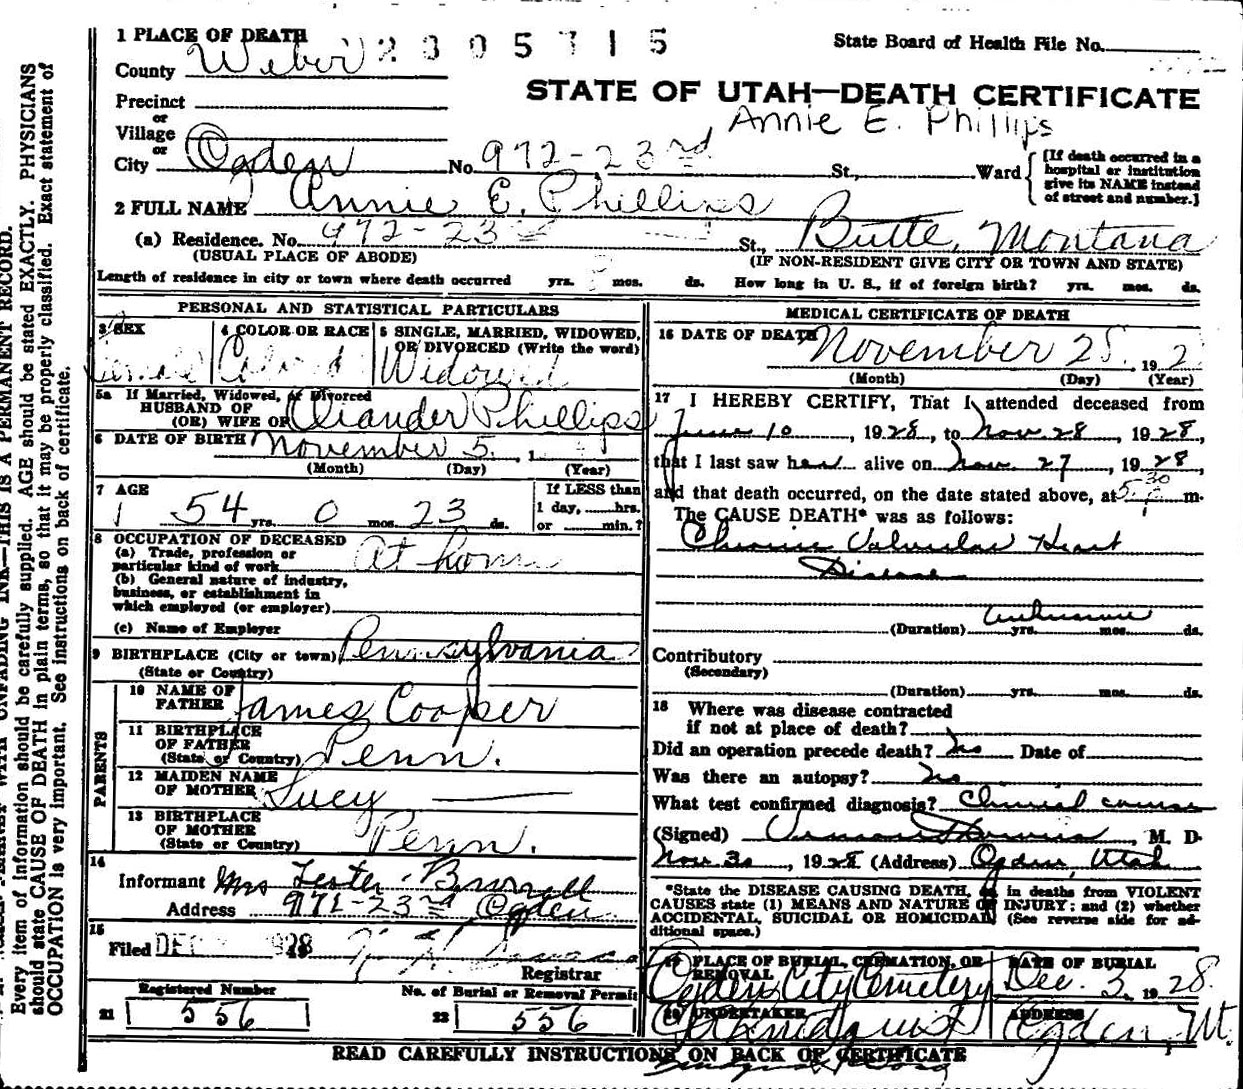 1 PLACE OF DEATH 2305715 State Board of Health File No.
County Weber
STATE OF UTAH—DEATH CERTIFICATE
Precinct
or
Annie E. Phillips
Village
or
City Ogden No. 972-23rd St., Ward
[If death occurred in a
hospital or institution
give its NAME instead
of street and number.]
2 FULL NAME Annie E. Phillips
(a) Residence. No. 972-23 St., Butte, Montana
(USUAL PLACE OF ABODE) (IF NON-RESIDENT GIVE CITY OR TOWN AND STATE)
Length of residence in city or town where death occurred yrs. mos. ds. How long in U. S., if of foreign birth? yrs. mos. ds.
PERSONAL AND STATISTICAL PARTICULARS
3 SEX
Female
4 COLOR OR RACE
Colored
5 SINGLE, MARRIED, WIDOWED,
OR DIVORCED (Write the word)
Widowed
5a If Married, Widowed, or Divorced
HUSBAND OF
(OR) WIFE OF Phillips
6 DATE OF BIRTH November 5, 1
(Month) (Day) (Year)
7 AGE
54 yrs. 0 mos. 23 ds.
If LESS than
1 day, hrs.
or min.?
8 OCCUPATION OF DECEASED
(a) Trade, profession or
particular kind of work At home
(b) General nature of industry,
business, or establishment in
which employed (or employer)
(c) Name of Employer
9 BIRTHPLACE (City or town) Pennsylvania
(State or Country)
PARENTS
10 NAME OF
FATHER James Cooper
11 BIRTHPLACE
OF FATHER
(State or Country) Penn.
12 MAIDEN NAME
OF MOTHER Lucy —
13 BIRTHPLACE
OF MOTHER
(State or Country) Penn.
14
Informant Mrs Lester
Address 972-23rd, Ogden
15
Filed DEC 1928
Registrar
Registered Number
21 556
No. of Burial or Removal Permit
22 556
MEDICAL CERTIFICATE OF DEATH
16 DATE OF DEATH November 28, 192
(Month) (Day) (Year)
17 I HEREBY CERTIFY, That I attended deceased from
June 10, 1928, to Nov. 28, 1928,
that I last saw her alive on Nov. 27, 1928
and that death occurred, on the date stated above, at 5 30 P m.
The CAUSE DEATH* was as follows:
Chronic Valvular Heart
Disease
unknown
(Duration) yrs. mos. ds.
Contributory
(Secondary)
(Duration) yrs. mos. ds.
18 Where was disease contracted
if not at place of death?
Did an operation precede death? No Date of
Was there an autopsy? No
What test confirmed diagnosis? Clinical course
(Signed) M. D.
Nov 30, 1928 (Address) Ogden, Utah
*State the DISEASE CAUSING DEATH, or in deaths from VIOLENT
CAUSES state (1) MEANS AND NATURE OF INJURY; and (2) whether
ACCIDENTAL, SUICIDAL OR HOMICIDAL (See reverse side for ad-
ditional space.)
19 PLACE OF BURIAL, CREMATION, OR
REMOVAL
Ogden City Cemetery
DATE OF BURIAL
Dec. 3, 1928.
20 UNDERTAKER
ADDRESS
Ogden, Ut.
READ CAREFULLY INSTRUCTIONS ON BACK OF CERTIFICATE
UNFADING INK—THIS IS A PERMANENT RECORD.
Every item of information should be carefully supplied. AGE should be stated EXACTLY. PHYSICIANS
should state CAUSE OF DEATH in plain terms, so that it may be properly classified. Exact statement of
OCCUPATION is very important. See instructions on back of certificate.